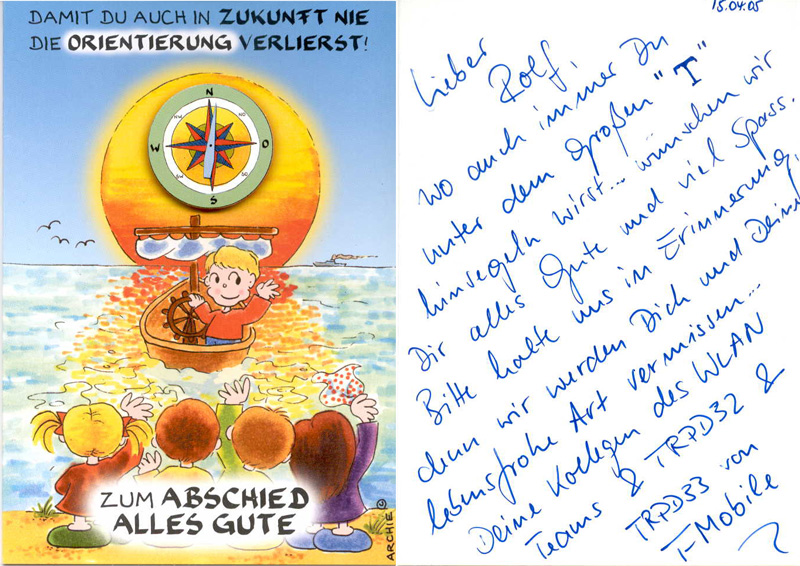 DAMIT DU AUCH IN ZUKUNFT NIE
DIE ORIENTIERUNG VERLIERST!
N
NW
NO
W
O
SW
SO
S
ZUM ABSCHIED
ALLES GUTE
ARCHIE
15.04.05
Lieber Rolf,
wo auch immer Du
unter dem großen "T"
hinsegeln wirst... wünschen wir
Dir alles Gute und viel Spass.
Bitte halte uns in Erinnerung,
denn wir werden Dich und Deine
lebensfrohe Art vermissen...
Deine Kollegen des WLAN
Teams & TRPD32 &
TRPD33 von
T-Mobile